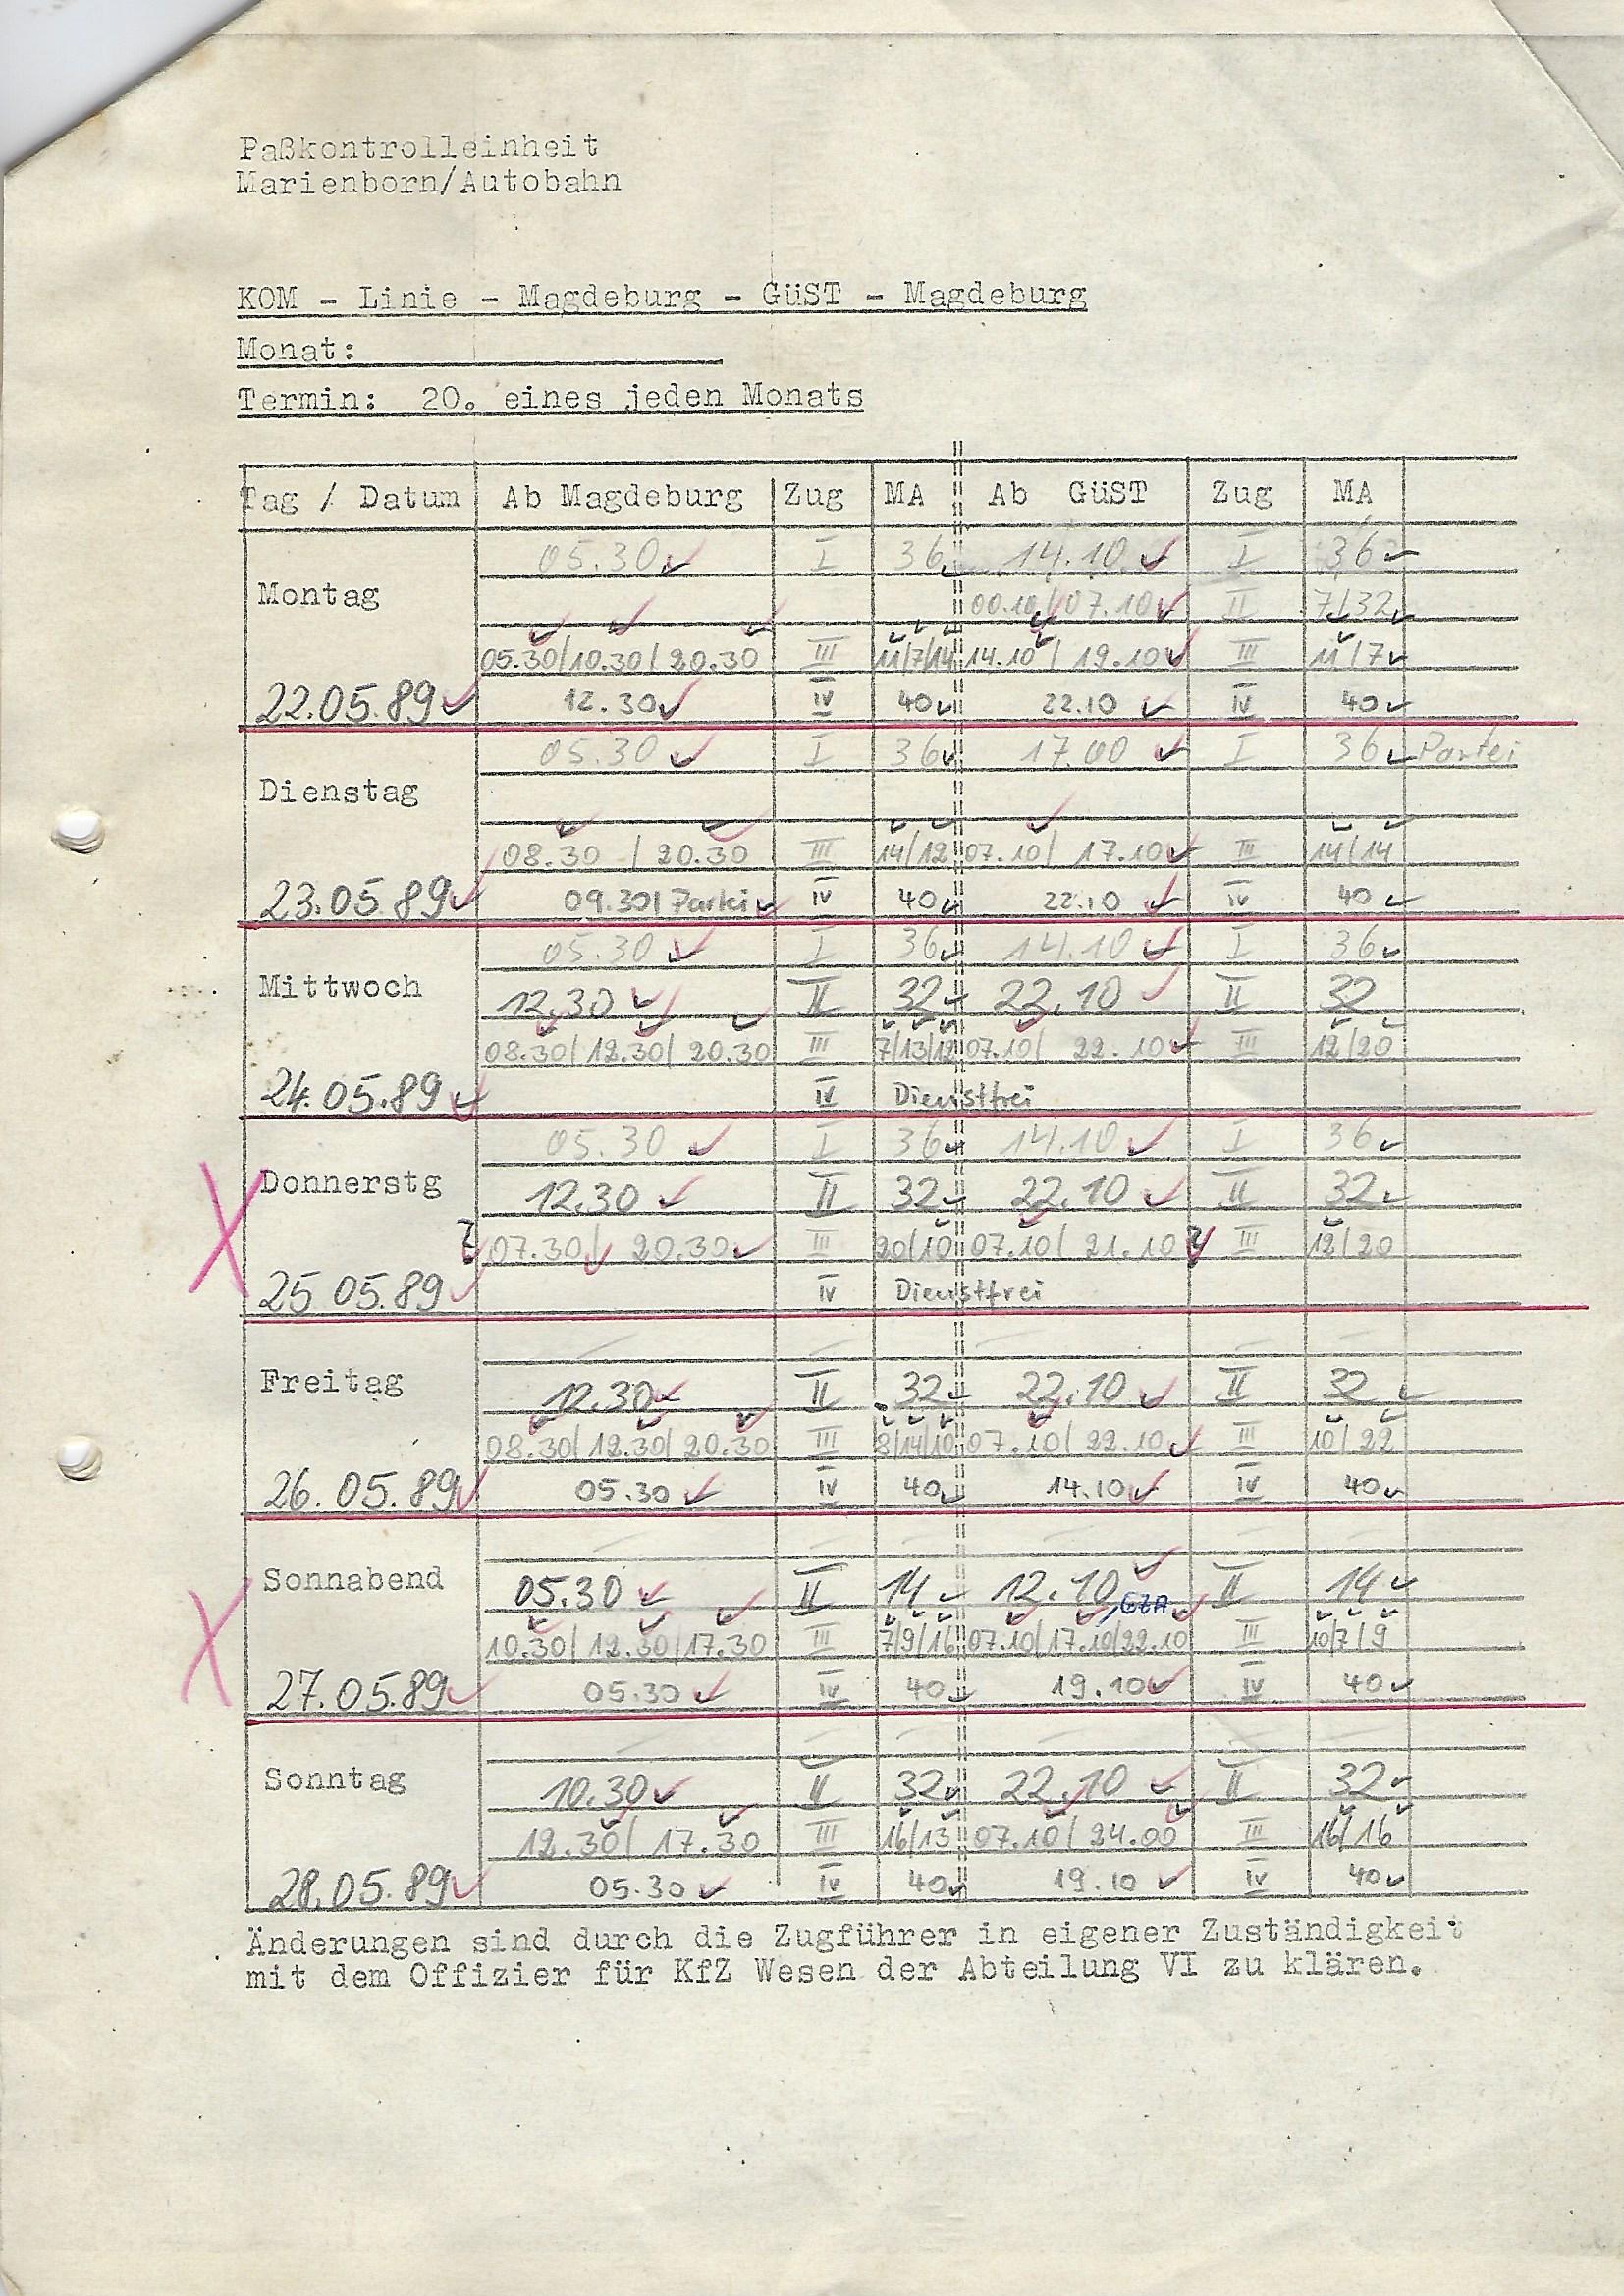 Paßkontrolleinheit
Marienborn/Autobahn
KOM - Linie - Magdeburg - GüST - Magdeburg
Monat:
Termin: 20. eines jeden Monats
Tag / Datum Ab Magdeburg Zug MA Ab GüST Zug MA
05.30 I 36 14.10 I 36
Montag
00.10/07.10 II 7/32
05.30/10.30/20.30 III 11/7/14 14.10/19.10 III 11/7
22.05.89 12.30 IV 40 22.10 IV 40
05.30 I 36 17.00 I 36 Partei
Dienstag
08.30 / 20.30 III 14/12 07.10/ 17.10 III 14/14
23.05.89 09.30/ Partei IV 40 22.10 IV 40
05.30 I 36 14.10 I 36
Mittwoch 12.30 II 32 22.10 II 32
08.30/12.30/20.30 III 7/13/12 07.10/ 22.10 III 12/20
24.05.89 IV Dienstfrei
05.30 I 36 14.10 I 36
Donnerstg 12.30 II 32 22.10 II 32
07.30/ 20.30 III 20/10 07.10/ 21.10 III 12/20
25 05.89 IV Dienstfrei
Freitag 12.30 II 32 22.10 II 32
08.30/12.30/20.30 III 8/14/10 07.10/22.10 III 10/22
26.05.89 05.30 IV 40 14.10 IV 40
Sonnabend 05.30 II 14 12.10 II 14
10.30/12.30/17.30 III 7/9/16 07.10/17.10/22.10 III 10/7/9
27.05.89 05.30 IV 40 19.10 IV 40
Sonntag 10.30 II 32 22.10 II 32
12.30/ 17.30 III 16/13 07.10/24.00 III 16/16
28.05.89 05.30 IV 40 19.10 IV 40
Änderungen sind durch die Zugführer in eigener Zuständigkeit
mit dem Offizier für KfZ Wesen der Abteilung VI zu klären.